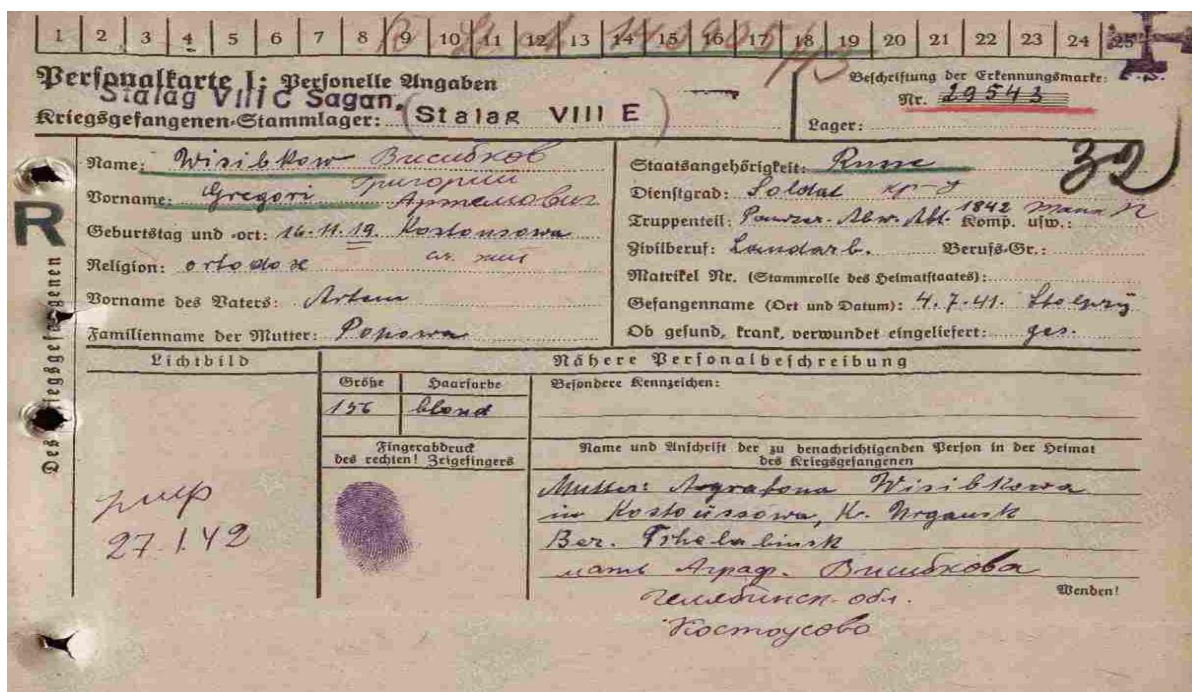 1 2 3 4 5 6 7 8 9 10 11 12 13 14 15 16 17 18 19 20 21 22 23 24 25
Personalkarte I: Personelle Angaben
Beschriftung der Erkennungsmarke:
Stalag VIII C Sagan.
Nr. 29543
Kriegsgefangenen-Stammlager: (Stalag VIII E)
Lager:
Des Kriegsgefangenen
R
Name: Wisibkow Висибков
Vorname: Gregori Григорий
Артемович
Geburtstag und -ort: 16.11.19. Kostousowa
Religion: ortodox
Vorname des Vaters: Artem
Familienname der Mutter: Popowa
32
Staatsangehörigkeit: Russe
Dienstgrad: Soldat кр-ц
Truppenteil: Panzer-Abw. Abt. 1842 Komp. usw.:
Zivilberuf: Landarb. Berufs-Gr.:
Matrikel Nr. (Stammrolle des Heimatstaates):
Gefangenname (Ort und Datum): 4.7.41.
Ob gesund, krank, verwundet eingeliefert: ges.
Lichtbild
Nähere Personalbeschreibung
Größe Haarfarbe Besondere Kennzeichen:
156 blond
Fingerabdruck
des rechten! Zeigefingers
Name und Anschrift der zu benachrichtigenden Person in der Heimat
des Kriegsgefangenen
Mutter: Agrafona Wisibkowa
in Kostoussowa, Kr.
Ber. Tshelabinsk
мать Аграф. Висибкова
Челябинск. обл.
Костоусово
умер
27.1.42
Wenden!